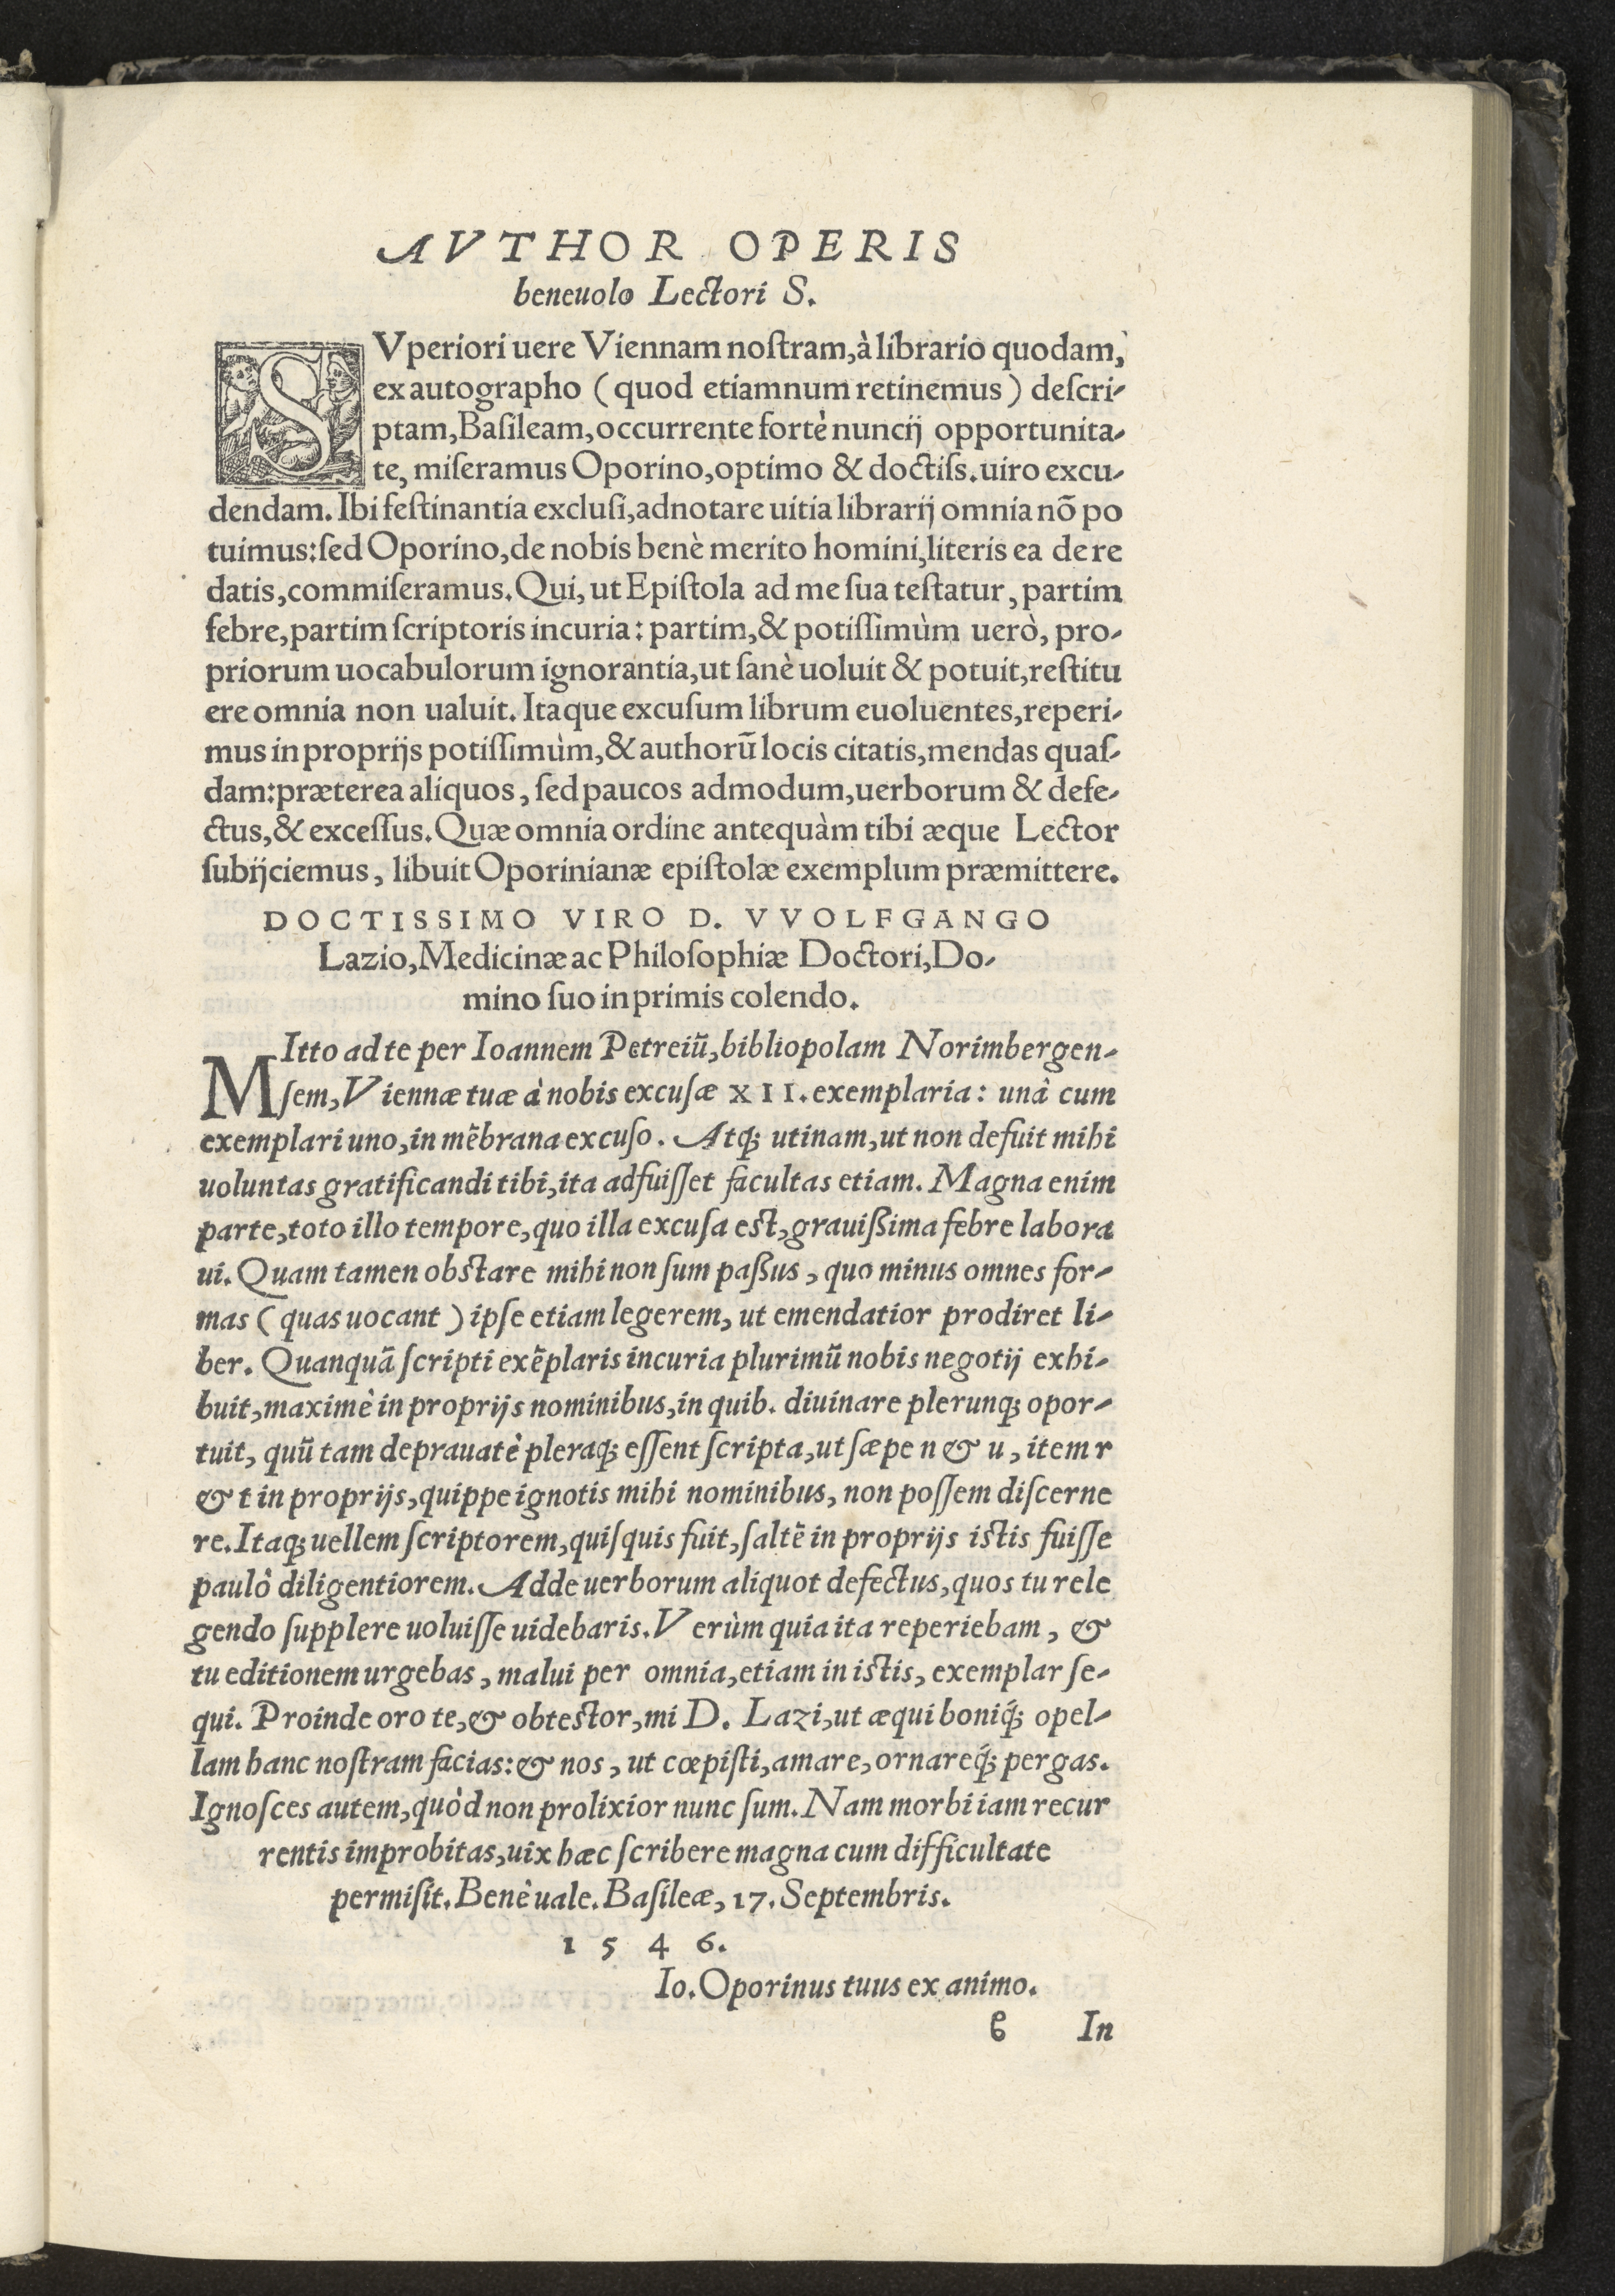 AVTHOR OPERIS
beneuolo Lectori S.
SVperiori uere Viennam noſtram, à librario quodam,
ex autographo (quod etiamnum retinemus) deſcri-
ptam, Baſileam, occurrente fortè nuncij opportunita-
te, miſeramus Oporino, optimo & doctiſs. uiro excu-
dendam. Ibi feſtinantia excluſi, adnotare uitia librarij omnia nõ po
tuimus: ſed Oporino, de nobis benè merito homini, literis ea de re
datis, commiſeramus. Qui, ut Epiſtola ad me ſua teſtatur, partim
febre, partim ſcriptoris incuria: partim, & potiſſimùm uerò, pro-
priorum uocabulorum ignorantia, ut ſanè uoluit & potuit, reſtitu
ere omnia non ualuit. Itaque excuſum librum euoluentes, reperi-
mus in proprijs potiſſimùm, & authorũ locis citatis, mendas quaſ-
dam: præterea aliquos, ſed paucos admodum, uerborum & defe-
ctus, & exceſſus. Quæ omnia ordine antequàm tibi æque Lector
ſubijciemus, libuit Oporinianæ epiſtolæ exemplum præmittere.
DOCTISSIMO VIRO D. VVOLFGANGO
Lazio, Medicinæ ac Philoſophiæ Doctori, Do-
mino ſuo inprimis colendo.
MItto ad te per Ioannem Petreiũ, bibliopolam Norimbergen-
ſem, Viennæ tuæ à nobis excuſæ XII. exemplaria: unâ cum
exemplari uno, in mẽbrana excuſo. Atq; utinam, ut non defuit mihi
uoluntas gratificandi tibi, ita adfuiſſet facultas etiam. Magna enim
parte, toto illo tempore, quo illa excuſa eſt, grauißima febre labora
ui. Quam tamen obſtare mihi non ſum paßus, quo minus omnes for-
mas (quas uocant) ipſe etiam legerem, ut emendatior prodiret li-
ber. Quanquã ſcripti exẽplaris incuria plurimũ nobis negotij exhi-
buit, maximè in proprijs nominibus, in quib. diuinare plerunq; opor-
tuit, quũ tam deprauatè pleraq; eſſent ſcripta, ut ſæpe n & u, item r
& t in proprijs, quippe ignotis mihi nominibus, non poſſem diſcerne
re. Itaq; uellem ſcriptorem, quiſquis fuit, ſaltẽ in proprijs iſtis fuiſſe
paulò diligentiorem. Adde uerborum aliquot defectus, quos tu rele
gendo ſupplere uoluiſſe uidebaris. Verùm quia ita reperiebam, &
tu editionem urgebas, malui per omnia, etiam in iſtis, exemplar ſe-
qui. Proinde oro te, & obteſtor, mi D. Lazi, ut æqui boniq́; opel-
lam hanc noſtram facias: & nos, ut cœpiſti, amare, ornareq́; pergas.
Ignoſces autem, quòd non prolixior nunc ſum. Nam morbi iam recur
rentis improbitas, uix hæc ſcribere magna cum difficultate
permiſit. Benè uale. Baſileæ, 17. Septembris.
1 5 4 6.
Io. Oporinus tuus ex animo.
6 In